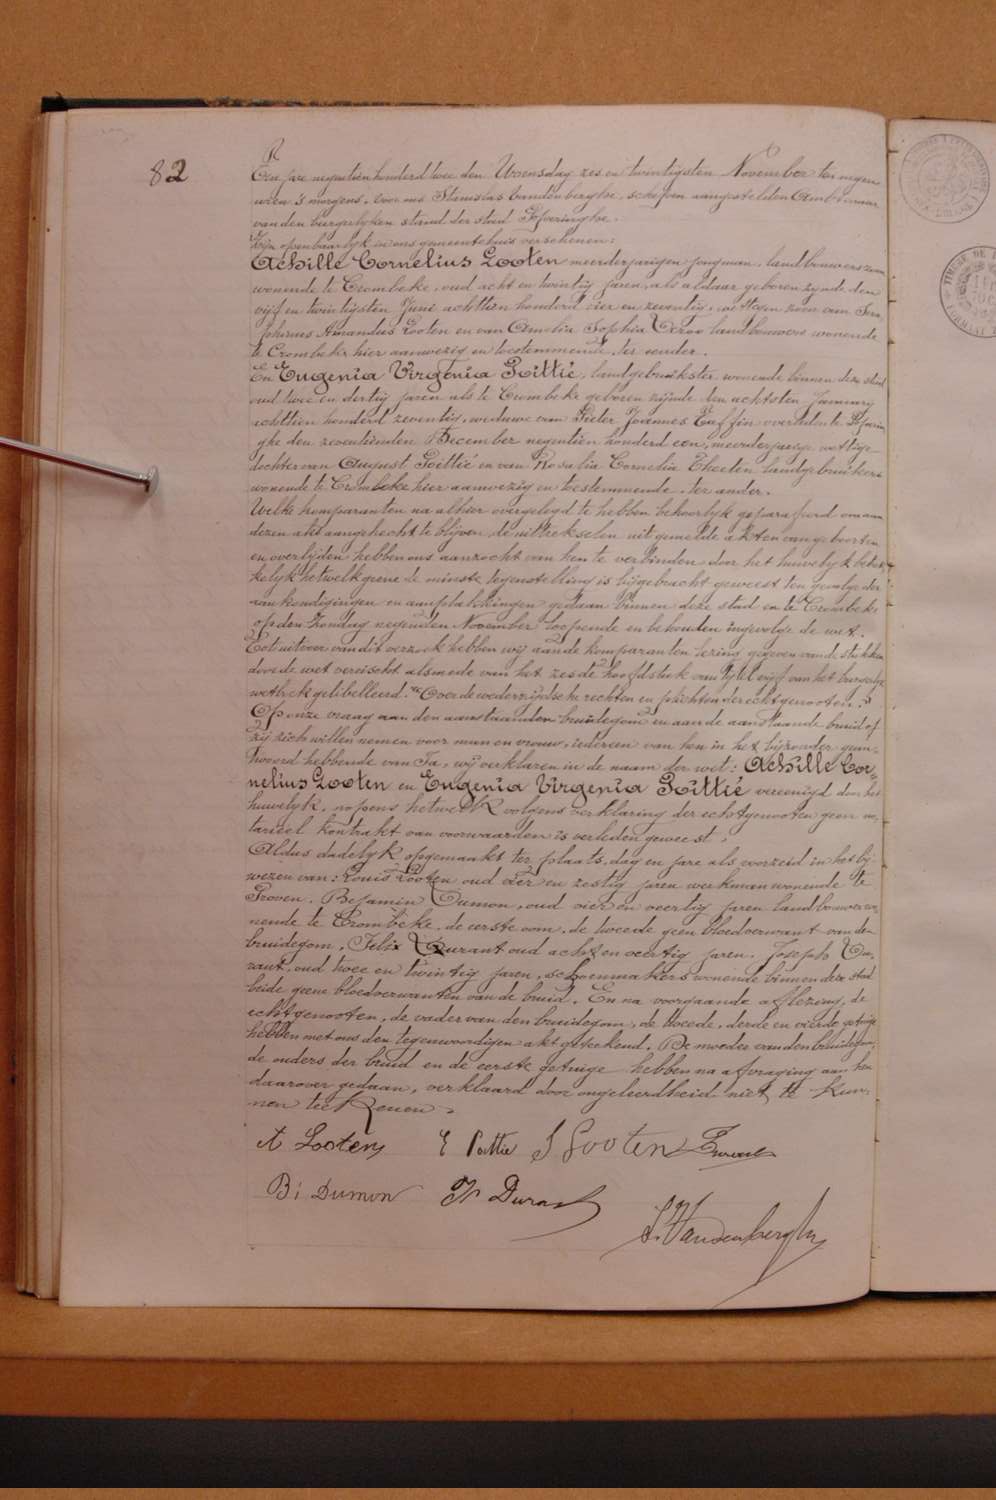 82
Een jare negentien honderd twee den Woensdag zes en twintigsten November ten negen
uren 's morgens, voor ons Stanislas Vandenberghe, schepen aangestelden Ambtenaar
van den burgelyken stand der stad Poperinghe.
Zijn openbaarlyk in ons gemeentehuis verschenen:
Achille Cornelius Looten meerderjarigen jongman, landbouwerszoon
wonende te Crombeke, oud acht en twintig jaren, als aldaar geboren zynde den
vijf en twintigsten Juni achttien honderd vier en zeventig, wettigen zoon van Sera-
phinus Amandus Looten en van Amelia Sophia landbouwers wonende
te Crombeke hier aanwezig en toestemmende, ter eender.
En Eugenia Virgenia Poittié, landgebruikster, wonende binnen deze stad
oud twee en dertig jaren als te Crombeke geboren zijnde den achtsten January
achttien honderd zeventig, weduwe van Pieter Joannes overleden te Poperin-
ghe den zeventienden December negentien honderd een, meerderjarige wettige
dochter van August Poittié en van Rosalia Cornelia Theeten landgebruikers
wonende te Crombeke hier aanwezig en toestemmende, ter ander.
Welke komparanten na alhier overgelegd te hebben behoorlyk geparafeerd om aan
dezen akt aangehecht te blijven, de uittrekselen uit gemelde akten van geboorten
en overlijden hebben ons aanzocht van hen te verbinden door het huwelyk betrek-
kelyk hetwelk geene de minste tegenstelling is bijgebracht geweest ten gevolge der
aankondigingen en aanplakkingen gedaan binnen deze stad en te Crombeke
op den Zondag negenden November loopende en behouden ingevolge de wet.
Tot uitvoer van dit verzoek hebben wij aan de komparanten lezing gegeven van de stukken
door de wet vereischt alsmede van het zesde hoofdstuk van Tytel vyf van het burgerlyk
wetboek gelibelleerd: "Over de wederzijdsche rechten en plichten der echtgenooten."
Op onze vraag aan den aanstaanden bruidegom en aan de aanstaande bruid of
zij zich willen nemen voor man en vrouw, iedereen van hen in het bijzonder geant-
woord hebbende van Ja, wij verklaren in de naam der wet: Achille Cor-
nelius Looten en Eugenia Virgenia Poittié vereenigd door het
huwelyk, nopens hetwelk volgens verklaring der echtgenooten geen no-
tarieel kontrakt van voorwaarden is verleden geweest.
Aldus dadelyk opgemaakt ter plaats, dag en jare als voorzeid in het bij-
wezen van: Louis Looten oud vier en zestig jaren werkman wonende te
Proven. Bejamin Dumon, oud vier en veertig jaren landbouwer wo-
nende te Crombeke, de eerste oom, de tweede geen bloedverwant van den
bruidegom, Felix Durant oud acht en veertig jaren. Joseph Du-
rant, oud twee en twintig jaren, schoenmakers wonende binnen deze stad
beide geene bloedverwanten van de bruid. En na voorgaande aflezing, de
echtgenooten, de vader van den bruidegom, de tweede, derde en vierde getuige
hebben met ons den tegenwoordigen akt geteekend. De moeder van den bruidegom,
de ouders der bruid en de eerste getuige hebben na afvraging aan hen
daarover gedaan, verklaard door ongeleerdheid niet te kun-
nen teekenen.
A Looten E Poittie S Looten Durant
Bi Dumon Durant
S. Vandenberghe